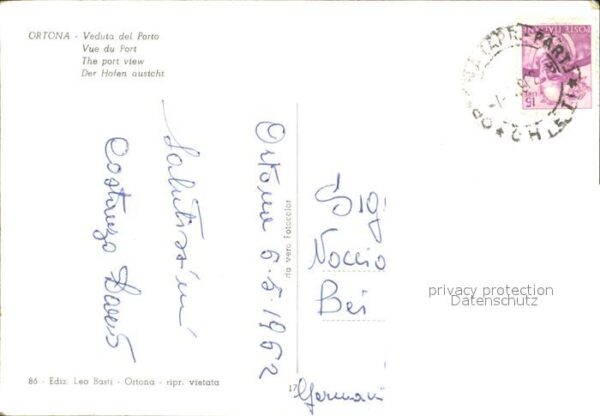 ORTONA - Veduta del Porto
Vue du Port
The port view
Der Hofen ausicht
Ortona 6-5-1962
Salutissimi
Costanzo
da vero Fotocolor
86 - Ediz. Leo Basti - Ortona - ripr. vietata
17
POSTE ITALIANE
15
CHIETI
Sig
Noccio
Bei
Germani
privacy protection
Datenschutz